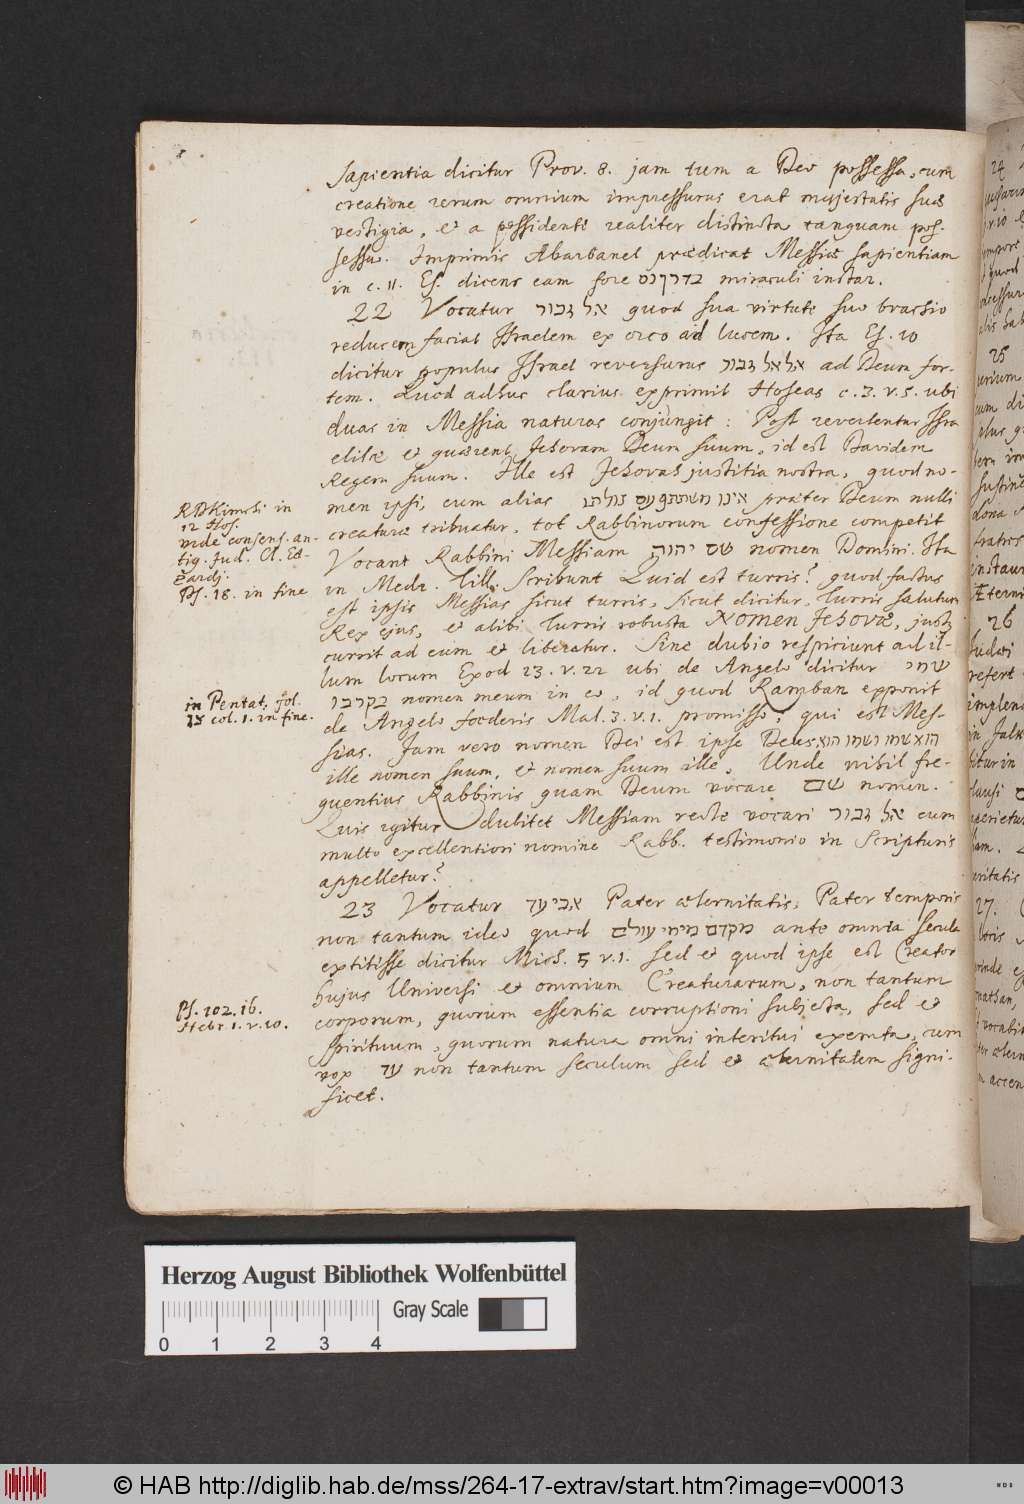 sapientia dicitur Prov. 8. jam tum a Deo possessa, cum
creatione rerum omnium impressurus erat majestatis suae
vestigia, et a possidente realiter distincta tanquam pos-
sessa. Imprimis Abarbanel praedicat Messiae sapientiam
in c. 11. Es. dicens eam fore בדרך נס miraculi instar.
22 Vocatur אל גבור quod sua virtute suo brachio
reducem faciat Israelem ex orco ad lucem. Ita Es. 10
dicitur populus Israel reversurus אל אל גבור ad Deum for-
tem. Quod adhuc clarius exprimit Hoseas c. 3. v. 5. ubi
duas in Messia naturas conjungit: Post revertentur Isra
elitae et quaerent Jehovam Deum suum, id est Davidem
Regem suum. Ille est Jehovah justitia nostra, quod no-
men ipsi, cum alias אינו משתתף עם זולתו praeter Deum nulli
creaturae tribuatur, tot Rabbinorum confessione competit
Vocant Rabbini Messiam שם יהוה nomen Domini. Ita
in Medr. Till. scribunt Quid est turris? quod factus
est ipsis Messias sicut turris, sicut dicitur, turris salutum
Regis ejus, et alibi turris robusta Nomen Jehovae, justus
currit ad eum et liberatur. Sine dubio respiciunt ad il-
lum locum Exod 23. v. 22 ubi de Angelo dicitur שמי
בקרבו nomen meum in eo, id quod Ramban exponit
de Angelo foederis Mal. 3. v. 1. promisso, qui est Mes-
sias. Jam vero nomen Dei est ipse Deus הוא שמו ושמו הוא
ille nomen suum, et nomen suum ille. Unde nihil fre-
quentius Rabbinis quam Deum vocare שם nomen.
Quis igitur dubitet Messiam recte vocari אל גבור cum
multo excellentiori nomine Rabb. testimonio in Scripturis
appelletur?
23 Vocatur אבי עד Pater aeternitatis, Pater temporis
non tantum ideo quod מקדם מימי עולם ante omnia secula
extitisse dicitur Mich. 5 v. 1. sed et quod ipse est Creator
hujus Universi et omnium Creaturarum, non tantum
corporum, quorum essentia corruptioni subjecta, sed et
spirituum, quorum natura omni interitui exemta, cum
vox עד non tantum seculum sed et aeternitatem signi-
ficet.
R D Kimchi in
12 Hos.
vide consens. an-
tiq. Jud. Cl. Ed-
zardj.
Ps. 18. in fine
in Pentat. fol.
col. 1. in fine.
Ps. 102. 16.
Hebr. 1. v. 10.
24
25
26
27.
Herzog August Bibliothek Wolfenbüttel
Gray Scale
0 1 2 3 4
© HAB http://diglib.hab.de/mss/264-17-extrav/start.htm?image=v00013